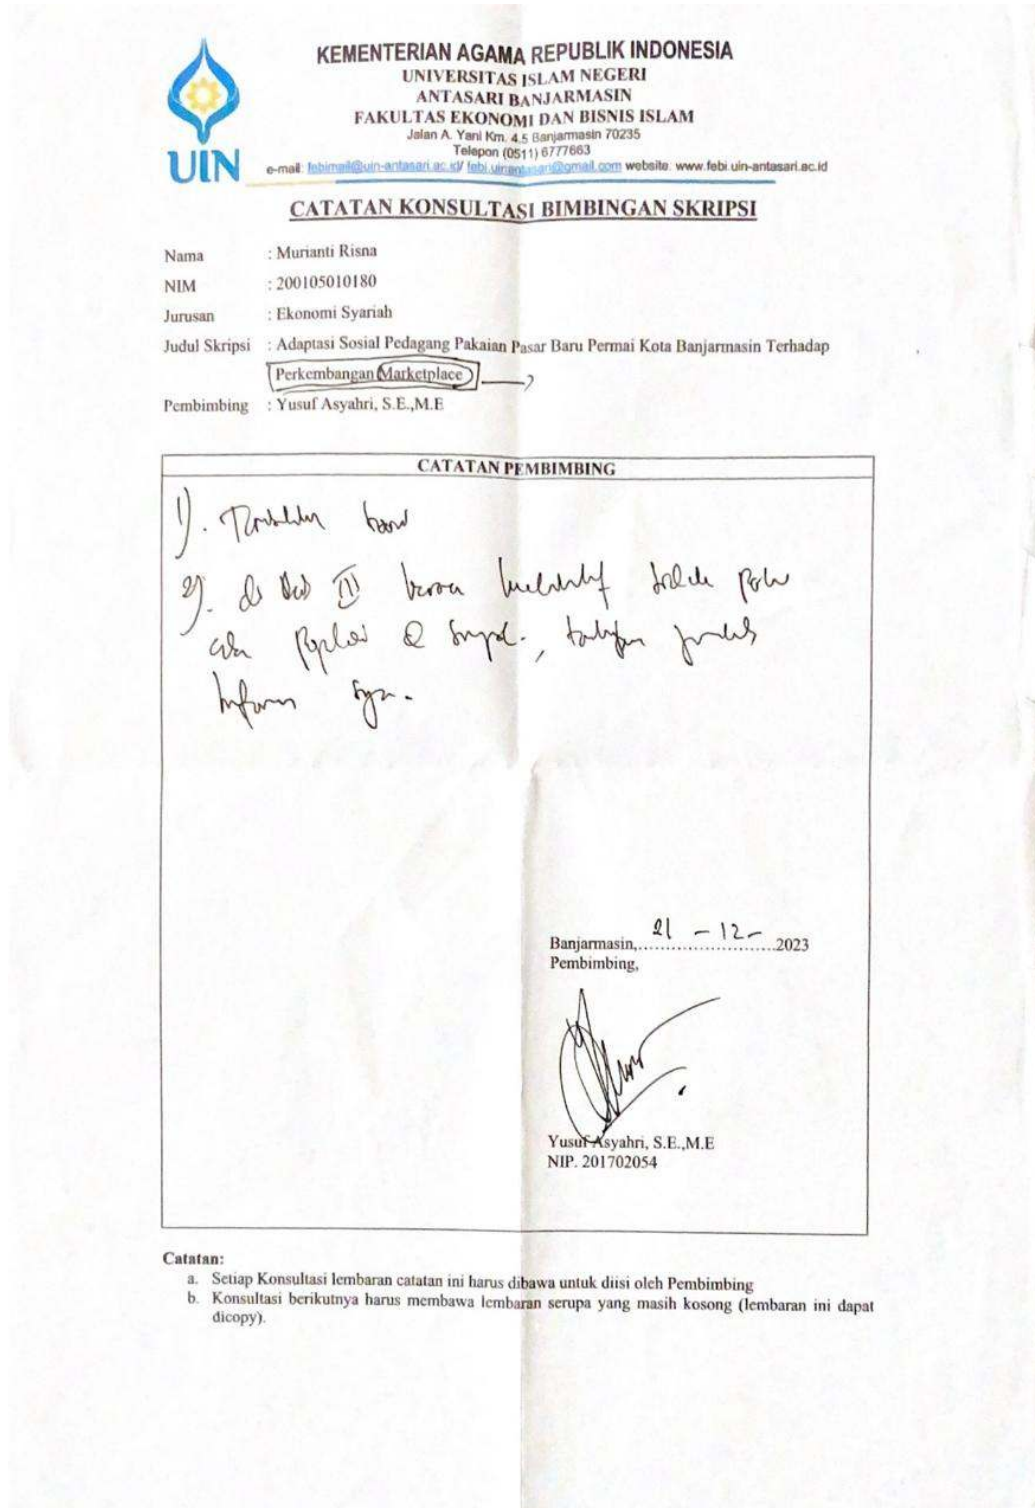 KEMENTERIAN AGAMA REPUBLIK INDONESIA
UNIVERSITAS ISLAM NEGERI
ANTASARI BANJARMASIN
FAKULTAS EKONOMI DAN BISNIS ISLAM
Jalan A. Yani Km. 4,5 Banjarmasin 70235
Telepon (0511) 6777663
UIN
e-mail: febimail@uin-antasari.ac.id/ febi.uinantasari@gmail.com website: www.febi.uin-antasari.ac.id
CATATAN KONSULTASI BIMBINGAN SKRIPSI
Nama : Murianti Risna
NIM : 200105010180
Jurusan : Ekonomi Syariah
Judul Skripsi : Adaptasi Sosial Pedagang Pakaian Pasar Baru Permai Kota Banjarmasin Terhadap
Perkembangan Marketplace
Pembimbing : Yusuf Asyahri, S.E.,M.E
CATATAN PEMBIMBING
1).
2). di Bab III
Banjarmasin, 21 - 12 - 2023
Pembimbing,
Yusuf Asyahri, S.E.,M.E
NIP. 201702054
Catatan:
a. Setiap Konsultasi lembaran catatan ini harus dibawa untuk diisi oleh Pembimbing
b. Konsultasi berikutnya harus membawa lembaran serupa yang masih kosong (lembaran ini dapat
dicopy).